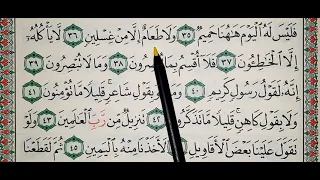 فَلَيْسَ لَهُ الْيَوْمَ هَاهُنَا حَمِيمٌ ٣٥ وَلَا طَعَامٌ إِلَّا مِنْ غِسْلِينٍ ٣٦ لَّا يَأْكُلُهُ
إِلَّا الْخَاطِئُونَ ٣٧ فَلَا أُقْسِمُ بِمَا تُبْصِرُونَ ٣٨ وَمَا لَا تُبْصِرُونَ ٣٩
إِنَّهُ لَقَوْلُ رَسُولٍ كَرِيمٍ ٤٠ وَمَا هُوَ بِقَوْلِ شَاعِرٍ قَلِيلًا مَّا تُؤْمِنُونَ ٤١
وَلَا بِقَوْلِ كَاهِنٍ قَلِيلًا مَّا تَذَكَّرُونَ ٤٢ تَنزِيلٌ مِّن رَّبِّ الْعَالَمِينَ ٤٣ وَلَوْ
تَقَوَّلَ عَلَيْنَا بَعْضَ الْأَقَاوِيلِ ٤٤ لَأَخَذْنَا مِنْهُ بِالْيَمِينِ ٤٥ ثُمَّ لَقَطَعْنَا